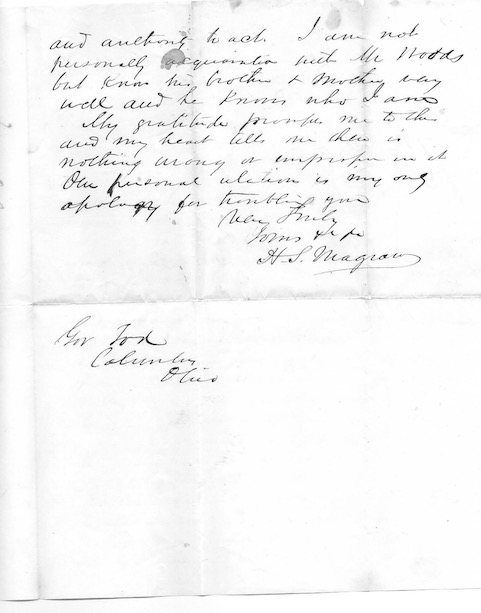 and authority to act. I am not
personally acquainted with Mr Woods
but know his brother & Mother very
well and he knows who I am
My gratitude prompts me to this
and my heart tells me there is
nothing wrong or improper in it
Our personal relations is my only
apology for troubling you
Very Truly
Yours &c
H. S. Magraw
Gov Tod
Columbus
Ohio